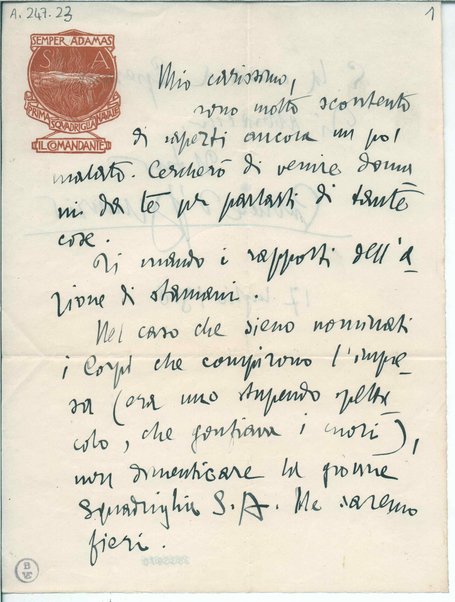 A. 247. 23
1
SEMPER ADAMAS
S A
PRIMA SQUADRIGLIA NAVALE
IL COMANDANTE
Mio carissimo,
sono molto scontento
di saperti ancora un po'
malato. Cercherò di venire doma
ni da te per parlarti di tante
cose.
Ti mando i rapporti dell'a-
zione di stamani.
Nel caso che sieno nominati
i Corpi che compirono l'impre-
sa (era uno stupendo spetta
colo, che gonfiava i cuori),
non dimenticare la giovane
Squadriglia S.A. Ne saremo
fieri.